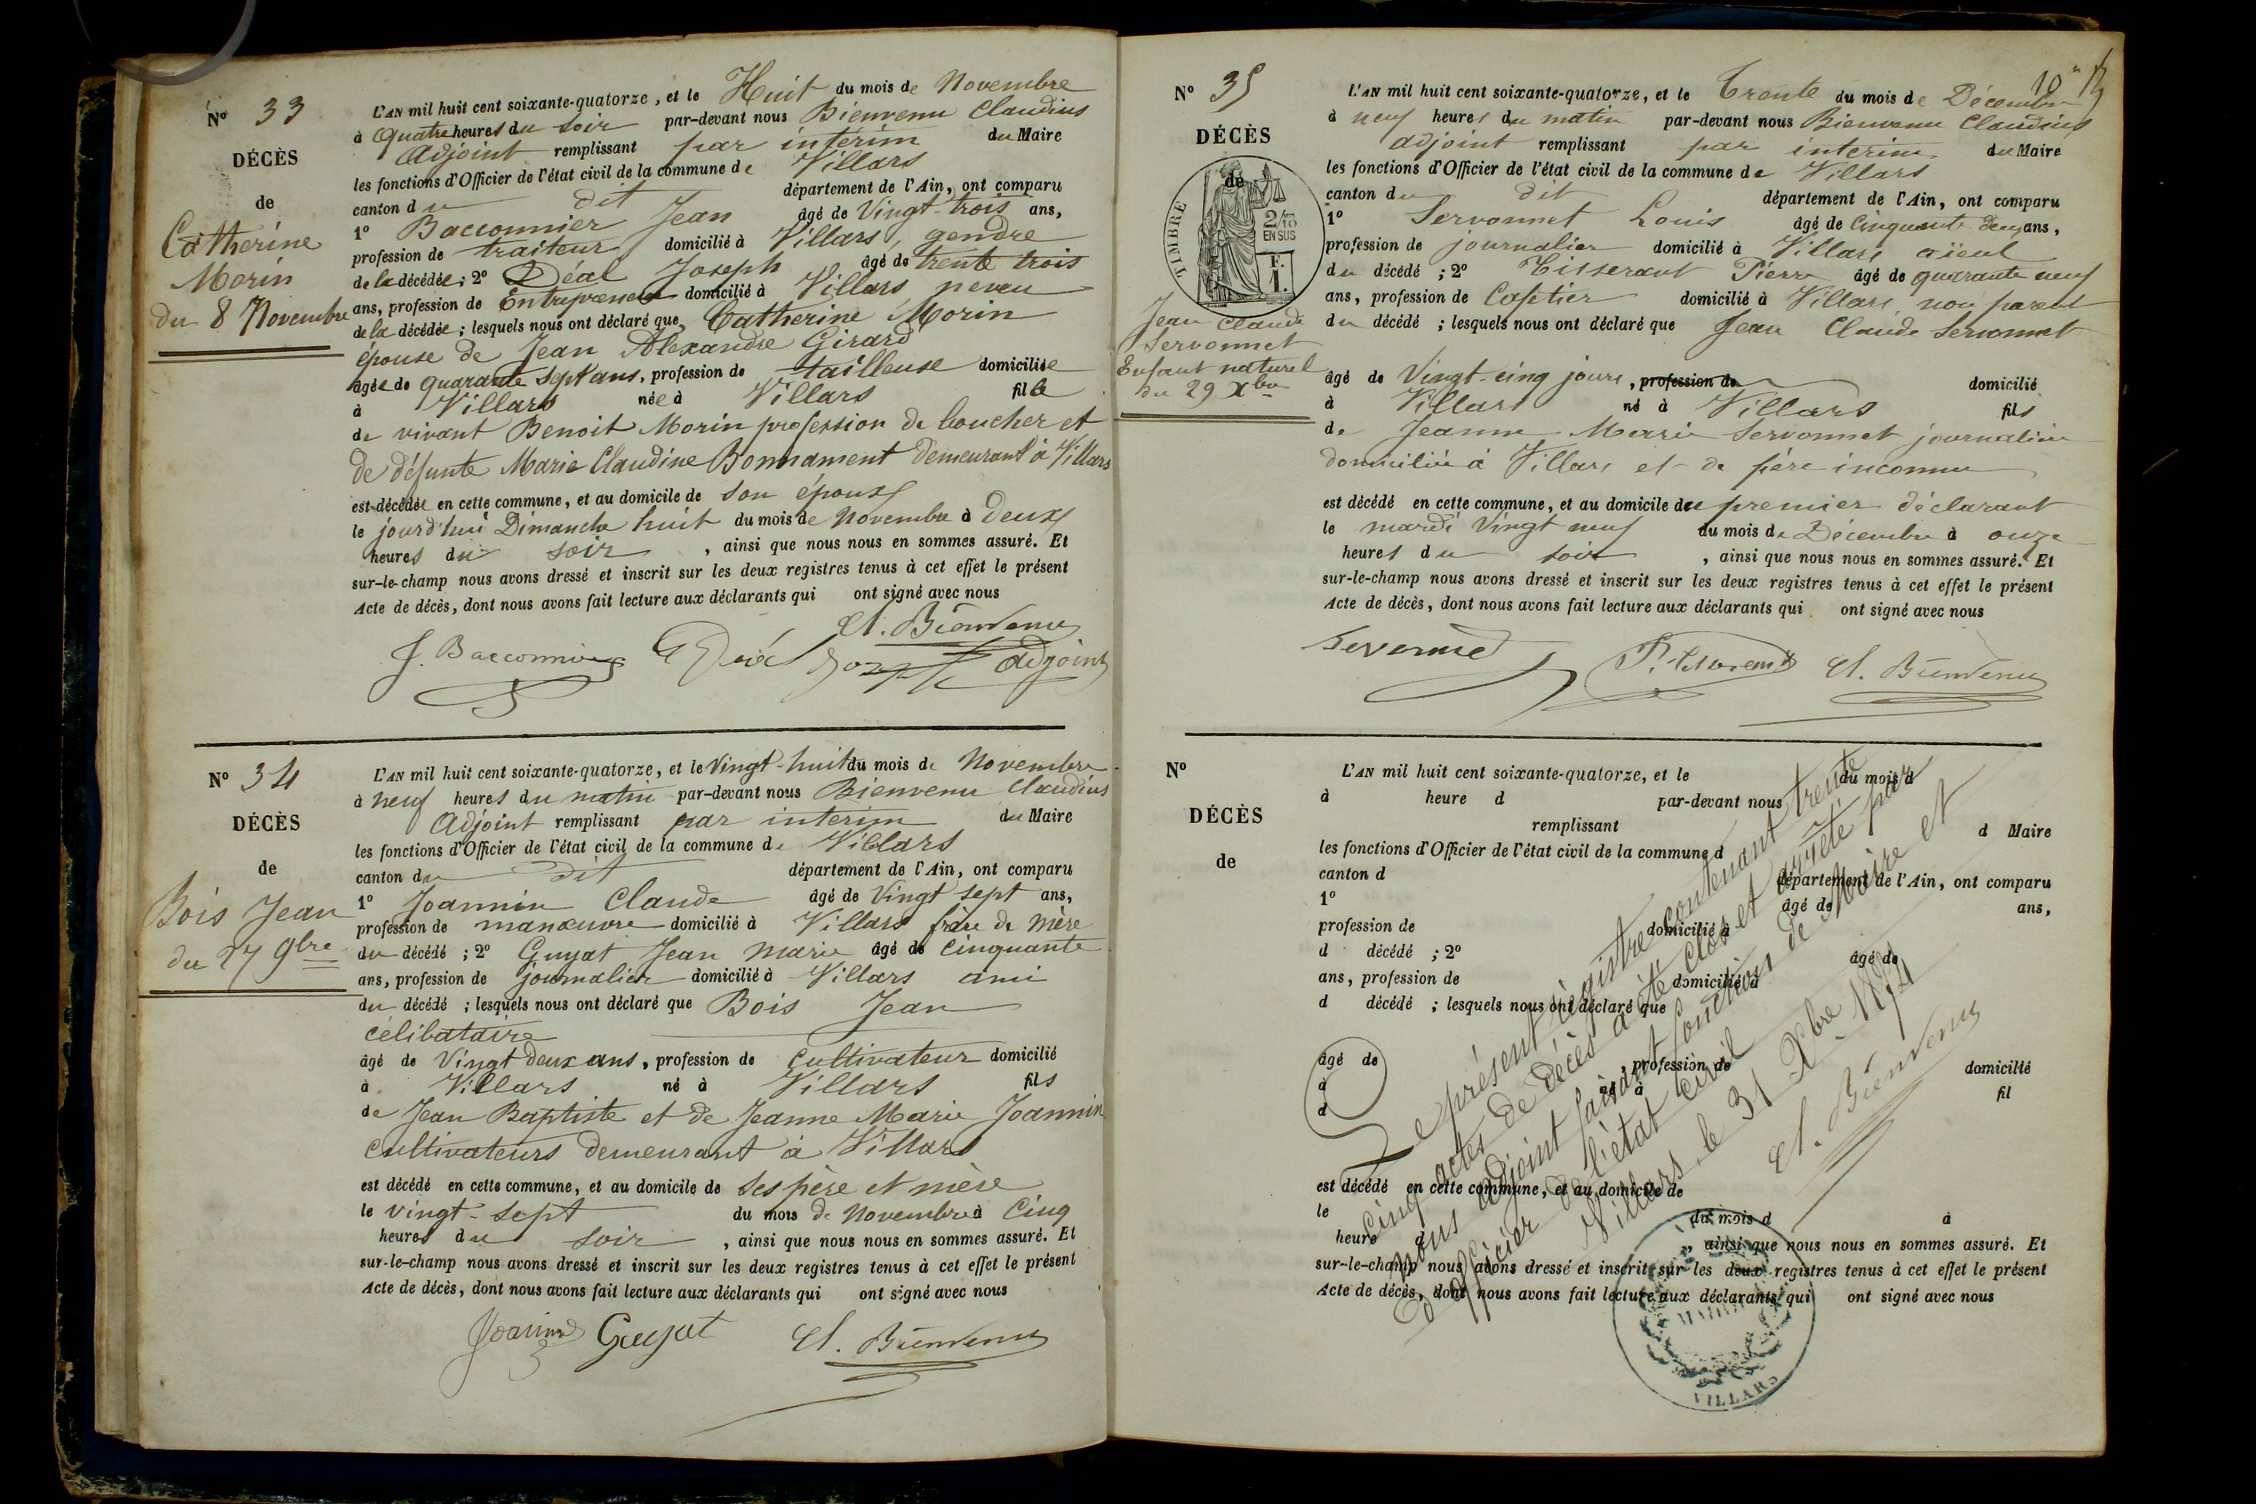 Nº 33
DÉCÈS
de
Catherine
Morin
du 8 Novembre
L'AN mil huit cent soixante-quatorze, et le Huit du mois de Novembre
à Quatre heures du soir par-devant nous Bienvenu Claudius
Adjoint remplissant par intérim du Maire
les fonctions d'Officier de l'état civil de la commune de Villars
canton du dit département de l'Ain, ont comparu
1º Bacconnier Jean âgé de Vingt-trois ans,
profession de traiteur domicilié à Villars, gendre
de la décédée; 2º Déal Joseph âgé de trente trois
ans, profession de Entrepreneur domicilié à Villars neveu
de la décédée; lesquels nous ont déclaré que Catherine Morin
épouse de Jean Alexandre Girard
âgée de quarante sept ans, profession de tailleuse domiciliée
à Villars née à Villars fille
de vivant Benoit Morin profession de boucher et
de défunte Marie Claudine Bonnament demeurant à Villars
est décédée en cette commune, et au domicile de son époux
le jourd'hui Dimanche huit du mois de Novembre à Deux
heures du soir, ainsi que nous nous en sommes assuré. Et
sur-le-champ nous avons dressé et inscrit sur les deux registres tenus à cet effet le présent
Acte de décès, dont nous avons fait lecture aux déclarants qui ont signé avec nous
Cl. Bienvenu
J. Bacconnier Joseph adjoint
Nº 34
DÉCÈS
de
Bois Jean
du 27 9bre
L'AN mil huit cent soixante-quatorze, et le Vingt-huit du mois de Novembre
à neuf heures du matin par-devant nous Bienvenu Claudius
Adjoint remplissant par interim du Maire
les fonctions d'Officier de l'état civil de la commune de Villars
canton du dit département de l'Ain, ont comparu
1º Joannin Claude âgé de Vingt sept ans,
profession de manœuvre domicilié à Villars frère de mère
du décédé; 2º Guyat Jean Marie âgé de Cinquante
ans, profession de journalier domicilié à Villars ami
du décédé; lesquels nous ont déclaré que Bois Jean
célibataire
âgé de Vingt deux ans, profession de Cultivateur domicilié
à Villars né à Villars fils
de Jean Baptiste et de Jeanne Marie Joannin
cultivateurs demeurant à Villars
est décédé en cette commune, et au domicile de ses père et mère
le vingt-sept du mois de Novembre à Cinq
heures du soir, ainsi que nous nous en sommes assuré. Et
sur-le-champ nous avons dressé et inscrit sur les deux registres tenus à cet effet le présent
Acte de décès, dont nous avons fait lecture aux déclarants qui ont signé avec nous
Joannin Guyat Cl. Bienvenu
10
Nº 35
DÉCÈS
de
TIMBRE
2/10
EN SUS
F.
1.
Jean Claude
Servonnet
Enfant naturel
du 29 Xbre
L'AN mil huit cent soixante-quatorze, et le Trente du mois de Décembre
à neuf heures du matin par-devant nous Bienvenu Claudius
adjoint remplissant par interim du Maire
les fonctions d'Officier de l'état civil de la commune de Villars
canton du dit département de l'Ain, ont comparu
1º Servonnet Louis âgé de Cinquante deux ans,
profession de journalier domicilié à Villars aïeul
du décédé; 2º Tisserant Pierre âgé de quarante neuf
ans, profession de Cafetier domicilié à Villars, non parent
du décédé; lesquels nous ont déclaré que Jean Claude Servonnet
âgé de Vingt-cinq jours, profession de domicilié
à Villars né à Villars fils
de Jeanne Marie Servonnet journalière
domiciliée à Villars et de père inconnu
est décédé en cette commune, et au domicile du premier déclarant
le mardi Vingt neuf du mois de Décembre à onze
heures du soir, ainsi que nous nous en sommes assuré. Et
sur-le-champ nous avons dressé et inscrit sur les deux registres tenus à cet effet le présent
Acte de décès, dont nous avons fait lecture aux déclarants qui ont signé avec nous
Servonnet P. Tisserant Cl. Bienvenu
Nº
DÉCÈS
de
L'AN mil huit cent soixante-quatorze, et le du mois d
à heure d par-devant nous
remplissant d Maire
les fonctions d'Officier de l'état civil de la commune d
canton d département de l'Ain, ont comparu
1º âgé de ans,
profession de domicilié à
d décédé; 2º âgé de
ans, profession de domicilié à
d décédé; lesquels nous ont déclaré que
âgé de, profession de domicilié
à né à fil
d
est décédé en cette commune, et au domicile de
le du mois d à
heure d, ainsi que nous nous en sommes assuré. Et
sur-le-champ nous avons dressé et inscrit sur les deux registres tenus à cet effet le présent
Acte de décès, dont nous avons fait lecture aux déclarants qui ont signé avec nous
Le présent registre contenant trente
cinq actes de décès a été clos et arrêté par
nous adjoint faisant fonction de Maire et
d'officier de l'état civil
Villars, le 31 Xbre 1874
Cl. Bienvenu
MAIRIE
VILLARS